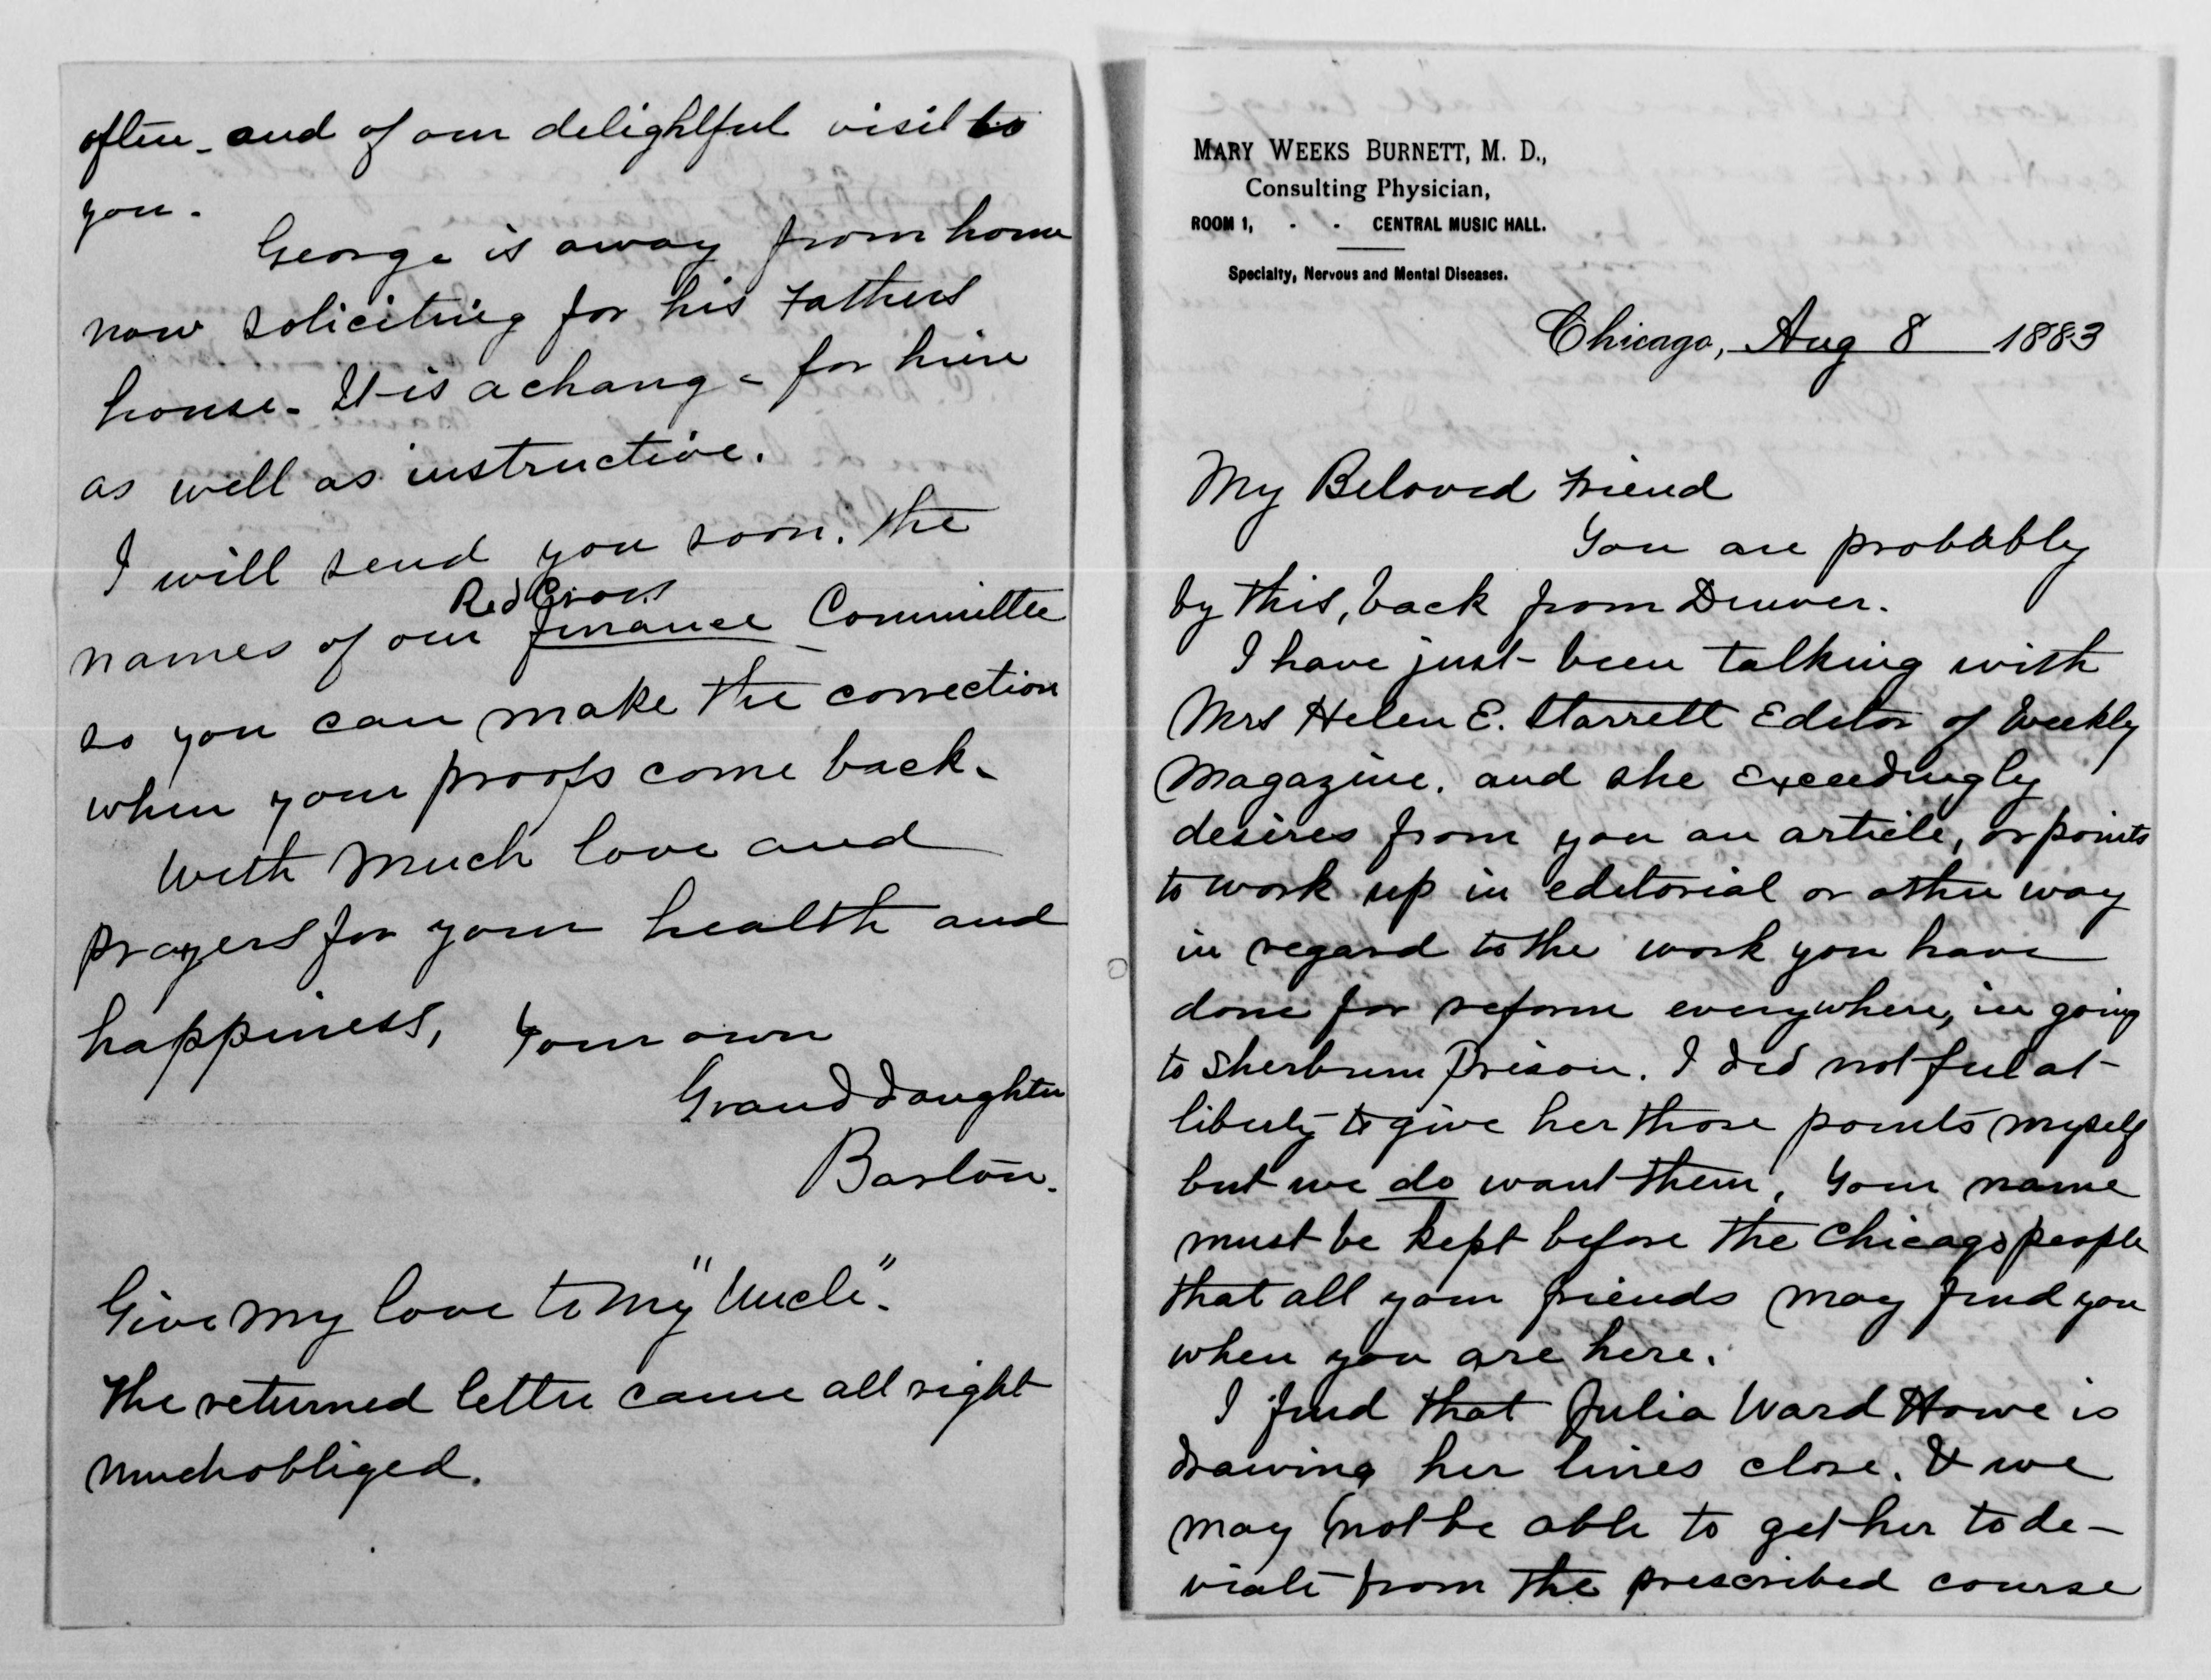 often - and of our delightful visit to
you.
George is away from home
now soliciting for his Fathers
house - It is a change for him
as well as instructive.
I will send you soon. the
Red Cross
names of our finance Committee
so you can make the correction
when your proofs come back.
With much love and
prayers for your health and
happiness, Your own
Grand daughter
Barton.
Give my love to my "Uncle".
The returned letter came all right
much obliged.
MARY WEEKS BURNETT, M. D.,
Consulting Physician,
ROOM 1, - - CENTRAL MUSIC HALL.
Specialty, Nervous and Mental Diseases.
Chicago, Aug 8 1883
My Beloved Friend
You are probably
by this, back from Denver.
I have just been talking with
Mrs Helen E. Starrett Editor of Weekly
Magazine. and she exceedingly
desires from you an article, or points
to work up in editorial or other way
in regard to the work you have
done for reform everywhere, in going
to Sherburn Prison. I did not feel at
liberty to give her those points myself
but we do want them. Your name
must be kept before the Chicago people
that all your friends may find you
when you are here.
I find that Julia Ward Howe is
drawing her lines close. & we
may not be able to get her to de-
viate from the prescribed course